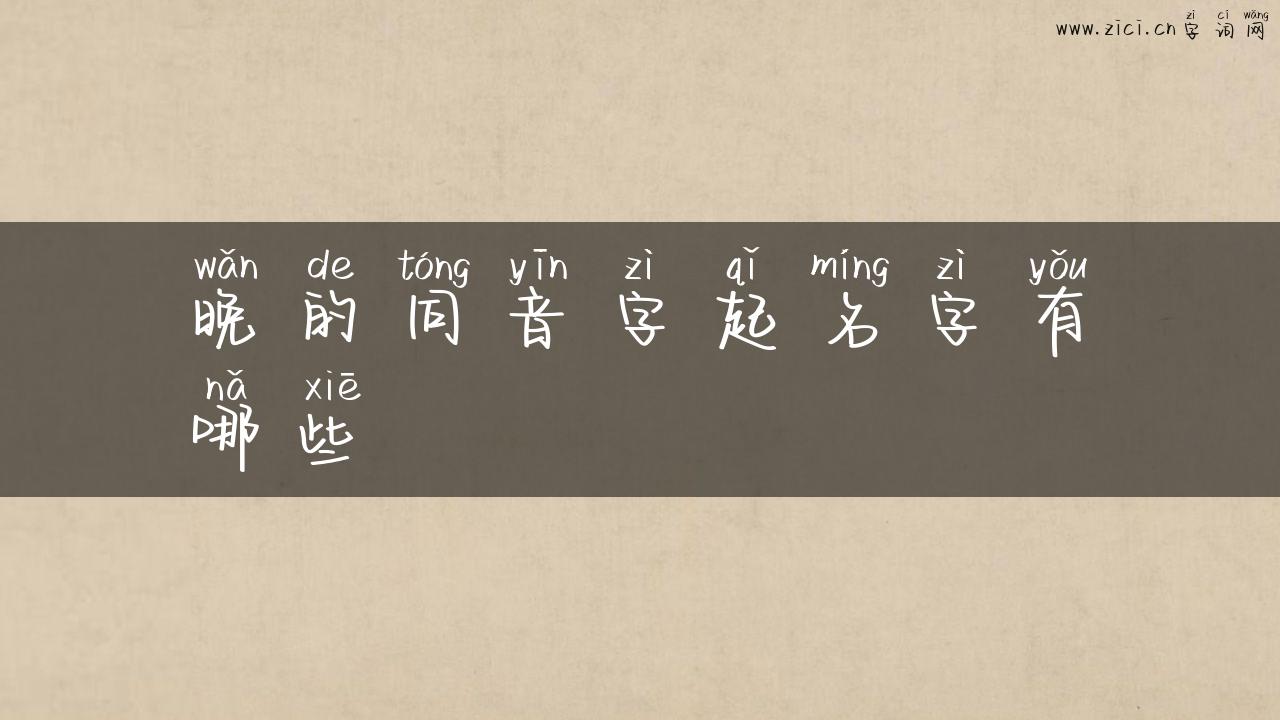 zì cí wǎng
www.zici.cn 字词网
wǎn de tóng yīn zì qǐ míng zì yǒu
晚的同音字起名字有
nǎ xiē
哪些